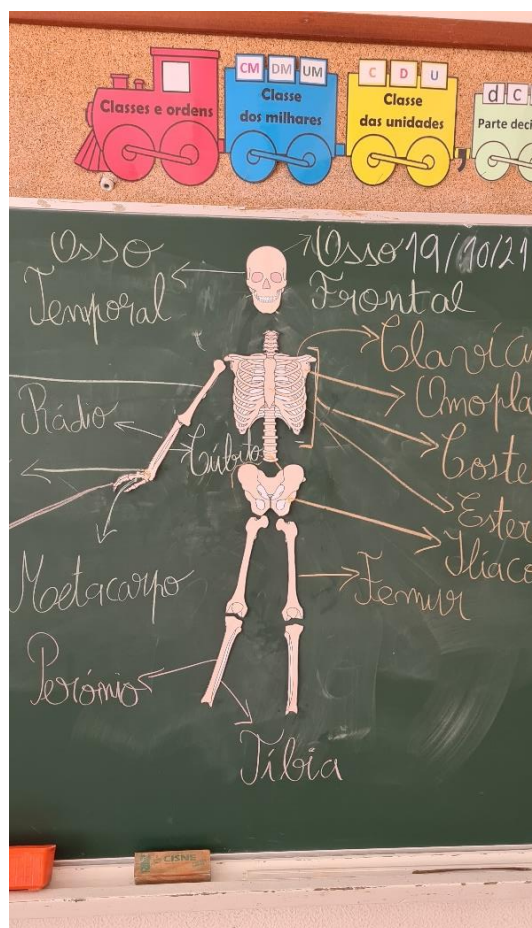 CM DM UM
C D U
d c
Classes e ordens
Classe
dos milhares
Classe
das unidades
Parte deci
Osso
Temporal
Osso
Frontal
19/10/21
Clavícu
Omopla
Coste
Ester
Ilíaco
Rádio
Cúbito
Metacarpo
Femur
Perónio
Tíbia
CISNE